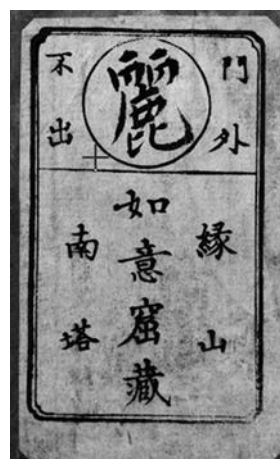 門外
麗
不出
縁山
如意窟藏
南塔